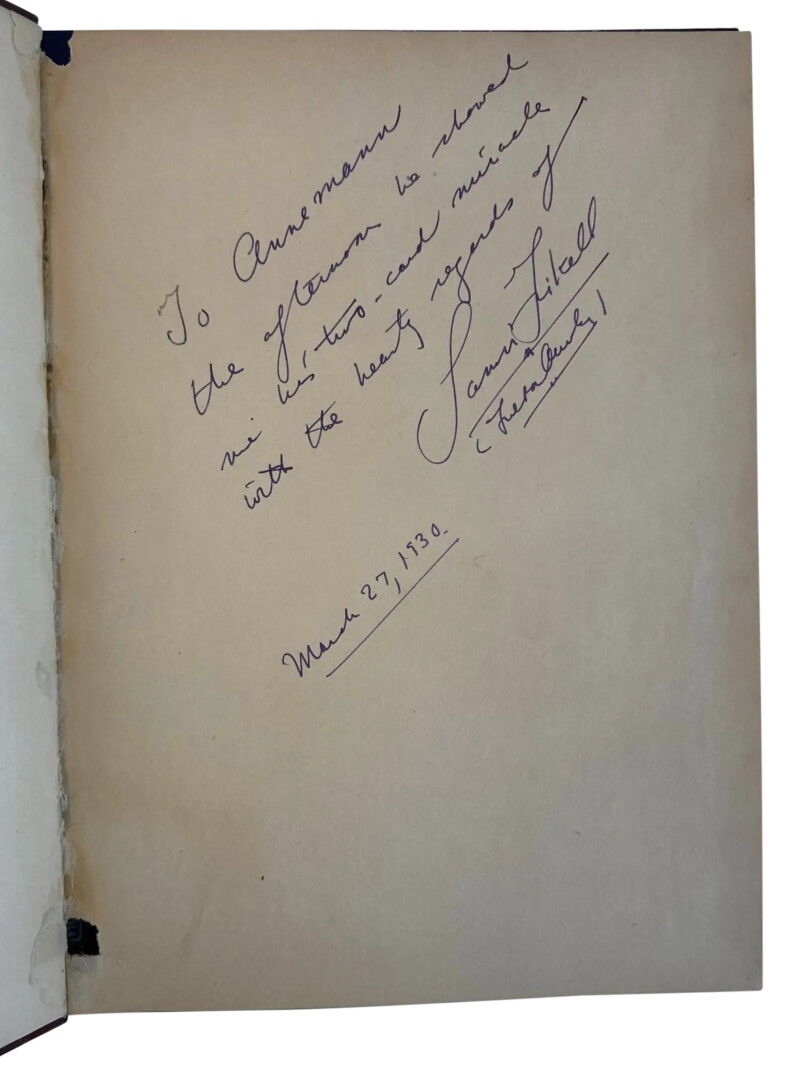 To Annemann
the afternoon he showed
me his two-card miracle
with the hearty regards of
Samri Frikell
(Fulton Oursler)
March 27, 1930.